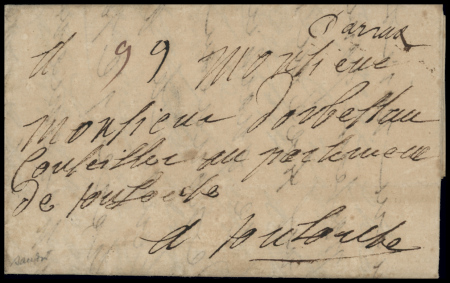 Darras
A 99 Monsieur
Monsieur Dorbessan
Conseiller au parlement
De toulouse
a toulouse